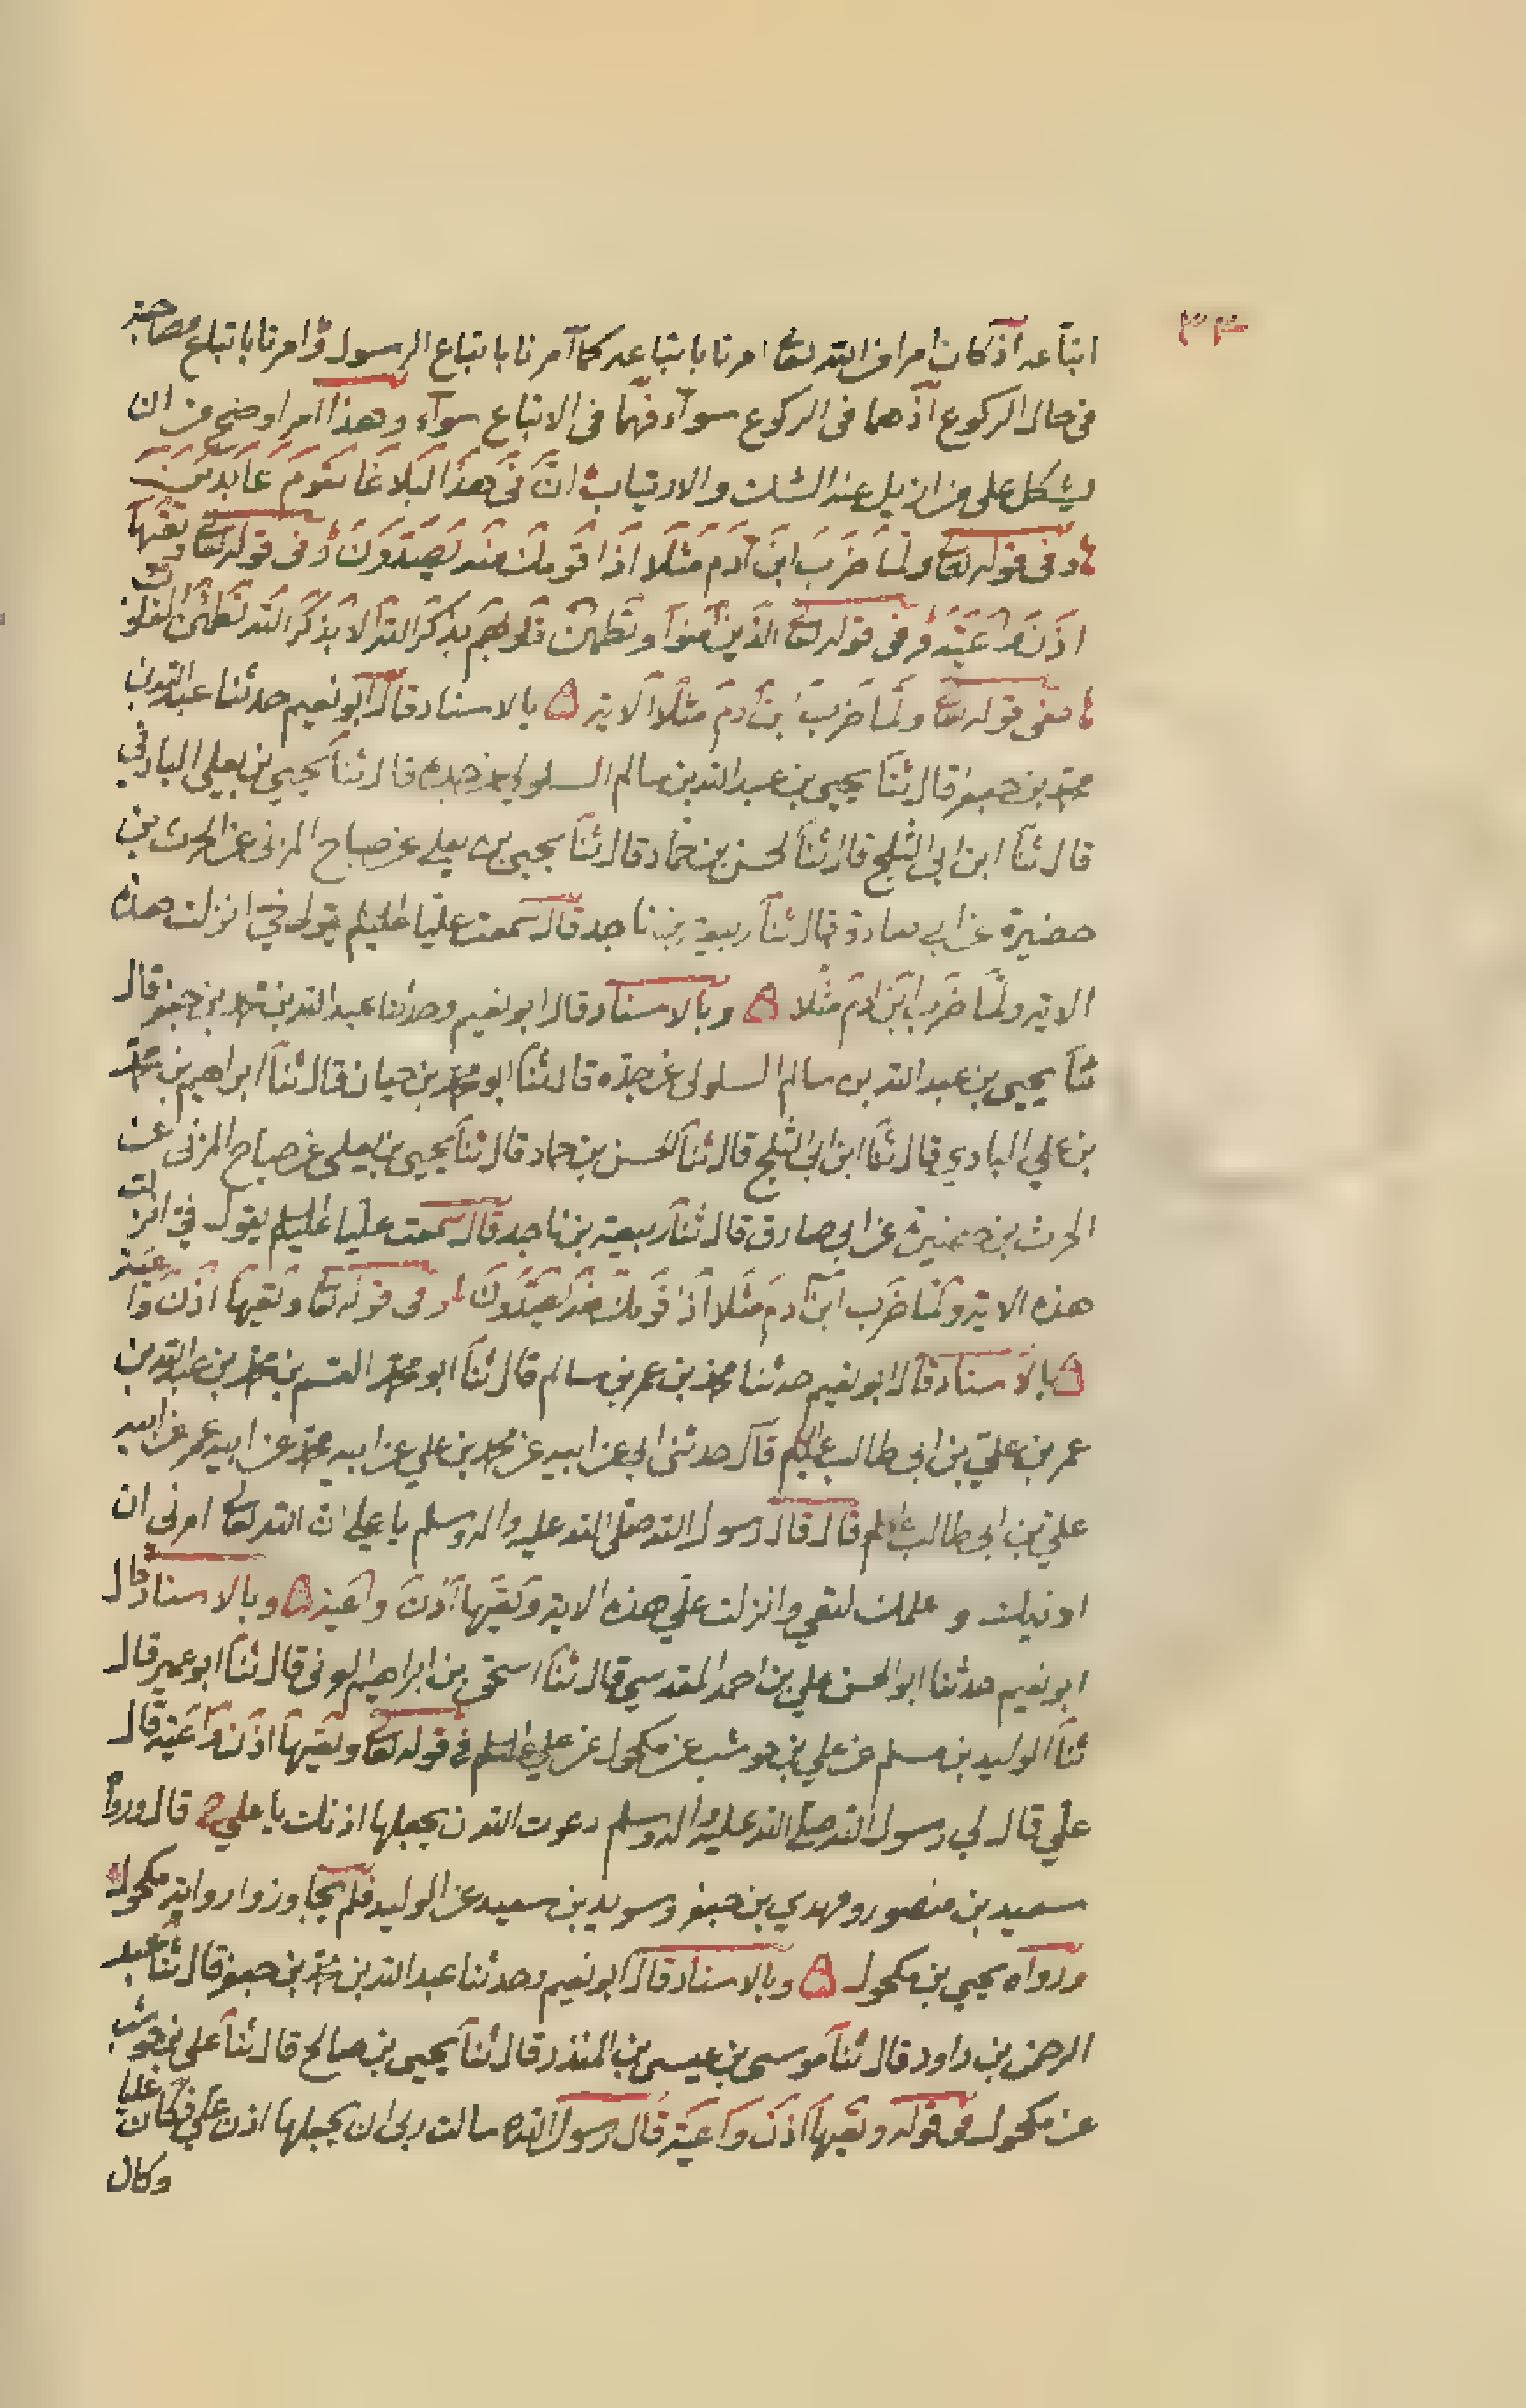 ٣٣
اتباعه اذ كان امرا من الله تعالى امرنا باتباعه كما امرنا باتباع الرسول وامرنا باتباع مصاحبه
فى حال الركوع اذ هما فى الركوع سواء فهما فى الاتباع سواء وهذا امر اوضح من ان
يشكل على من ازيل عنه الشك والارتياب ان فى هذا لبلاغا لقوم عابدين
وفى قوله تعالى ولما ضرب ابن ادم مثلا اذا قومك منه يصدون وفى قوله تعالى وتعيها
اذن واعية وفى قوله تعالى الذين امنوا وتطمئن قلوبهم بذكر الله الا بذكر الله تطمئن القلوب
فى قوله تعالى ولما ضرب ابن ادم مثلا الاية بالاسناد قال ابو نعيم حدثنا عبد الله بن
محمد بن جعفر قال ثنا يحيى بن عبد الله بن سالم السلولي عن جده قال ثنا يحيى بن يعلى البادني
قال ثنا ابن ابى الثلج قال ثنا لحسن بن حماد قال ثنا يحيى بن يعلى عن صباح المزنى عن الحرث بن
حضيرة عن ابي صادق قال ثنا ربيعة بن ناجد قال سمعت عليا عليه السلم يقول فيّ انزلت هذه
الاية ولما ضرب ابن ادم مثلا وبالاسناد قال ابو نعيم وحدثنا عبد الله بن محمد بن جعفر قال
ثنا يحيى بن عبد الله بن سالم السلولى عن جده قال ثنا ابو محمد بن حيان قال ثنا ابراهيم بن محمد
بن علي البادي قال ثنا ابن ابى الثلج قال ثنا الحسن بن حماد قال ثنا يحيى بن يعلى عن صباح المزنى عن
الحرث بن حضيرة عن ابى صادق قال ثنا ربيعة بن ناجد قال سمعت عليا عليه السلم يقول فيّ انزلت
هذه الاية ولما ضرب ابن ادم مثلا اذا قومك منه يصدون وفى قوله تعالى وتعيها اذن واعية
بالاسناد قال ابو نعيم حدثنا محمد بن عمر بن سالم قال ثنا ابو محمد القسم بن محمد بن عبد الله بن
عمر بن علي بن ابى طالب عليه السلم قال حدثنى ابى عن ابيه عن محمد بن علي عن ابيه محمد عن ابيه عمر عن ابيه
علي بن ابى طالب عليه السلم قال قال رسول الله صلى الله عليه واله وسلم يا علي ان الله تعالى امرنى ان
ادنيك و علمك لتعي وانزلت علي هذه الاية وتعيها اذن واعية وبالاسناد قال
ابو نعيم حدثنا ابو الحسن علي بن احمد المقدسي قال ثنا اسحق بن ابراهيم قال ثنا ابو عمير قال
ثنا الوليد بن مسلم عن علي بن حوشب عن مكحول عن علي عليه السلم فى قوله تعالى وتعيها اذن واعية قال
علي قال لي رسول الله صلى الله عليه واله وسلم دعوت الله ن يجعلها اذنك يا علي قال ورواه
سعيد بن منصور ومهدي بن جعفر وسويد بن سعيد عن الوليد فلم يجاوزوا رواية مكحول
ورواه يحيي بن مكحول وبالاسناد قال ابو نعيم وحدثنا عبد الله بن محمد بن جعفر قال ثنا عبد
الرحمن بن داود قال ثنا موسى بن عيسى بن المنذر قال ثنا يحيى بن صالح قال ثنا علي بن حوشب
عن مكحول فى قوله وتعيها اذن واعية قال رسول الله سالت ربى ان يجعلها اذن علي فكان عليا
وكان